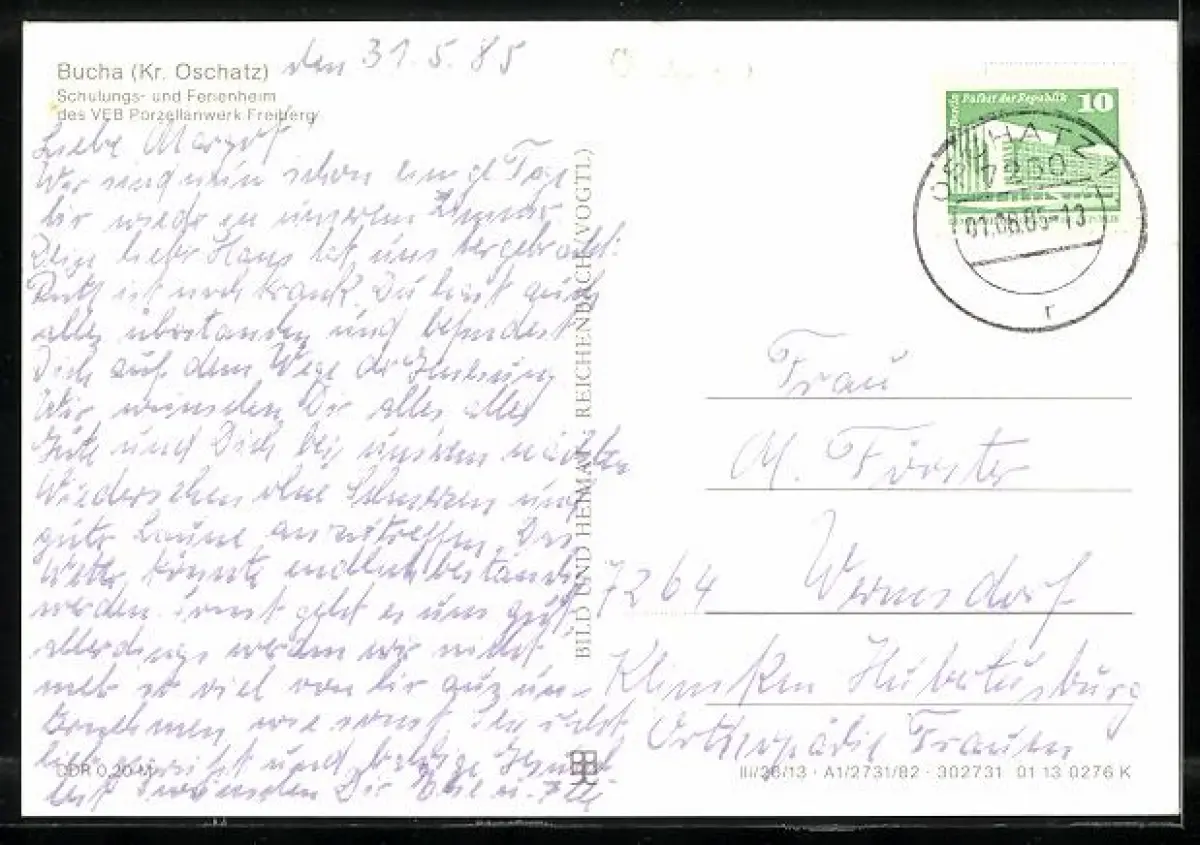 Bucha (Kr. Oschatz)
Schulungs- und Ferienheim
des VEB Porzellanwerk Freiberg
den 31.5.85
Liebe Margot
Wir sind nun schon einige Tage
hir wieder in unserem Zimmer
lieber Hans hat uns hergebracht.
ist noch krank. Du hast
alles überstanden und befindest
Dich auf dem Wege der
Wir wünschen Dir alles alles
Gute und Dich bei unserem nächsten
Wiedersehen ohne Schmerzen und
guter Laune anzutreffen. Das
Wetter könnte endlich beständig
werden. Sonst geht es uns gut,
allerdings werden wir nicht
mehr so viel von hir aus zu un-
ternehmen wie sonst.
und baldige
wünschen Dir
DDR 0,20 M
BILD UND HEIMAT · REICHENBACH (VOGTL.)
Palast der Republik 10
OSCHATZ 1
7260
01.06.85-13
r
Frau
M. Förster
7264 Wermsdorf
Kliniken Hubertusburg
Orthopädie Frauen
III/26/13 · A1/2731/82 · 302731 01 13 0276 K